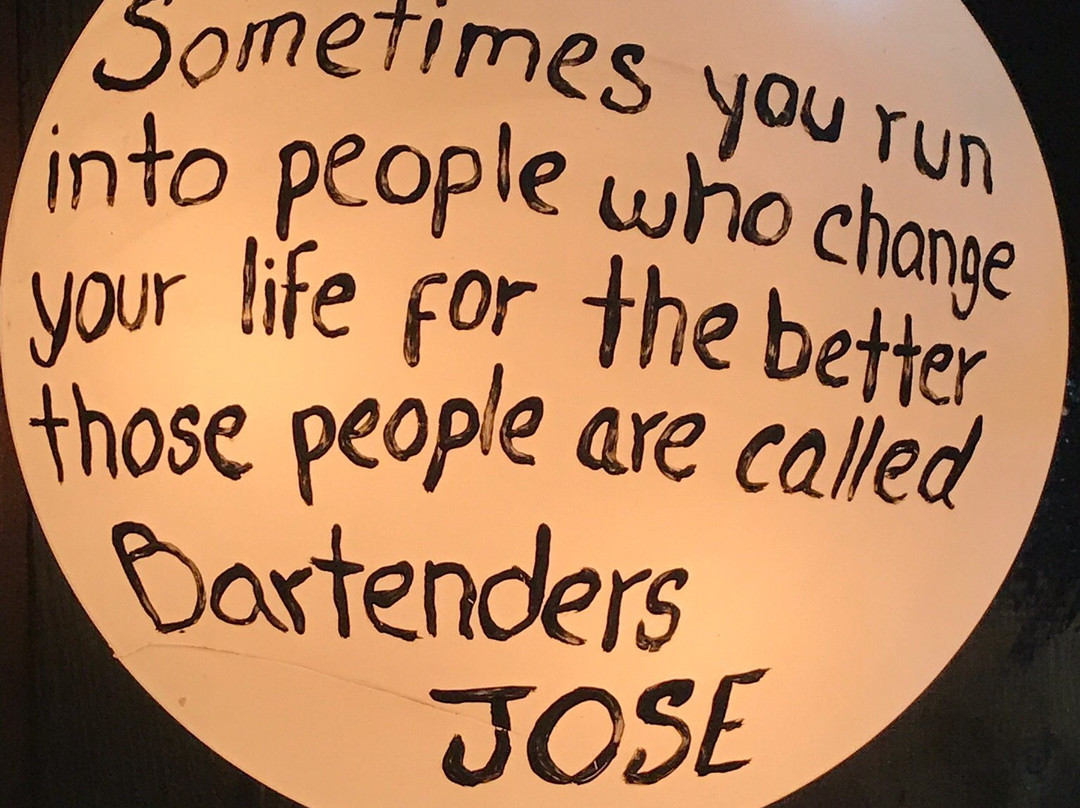 Sometimes you run
into people who change
your life for the better
those people are called
Bartenders
JOSE